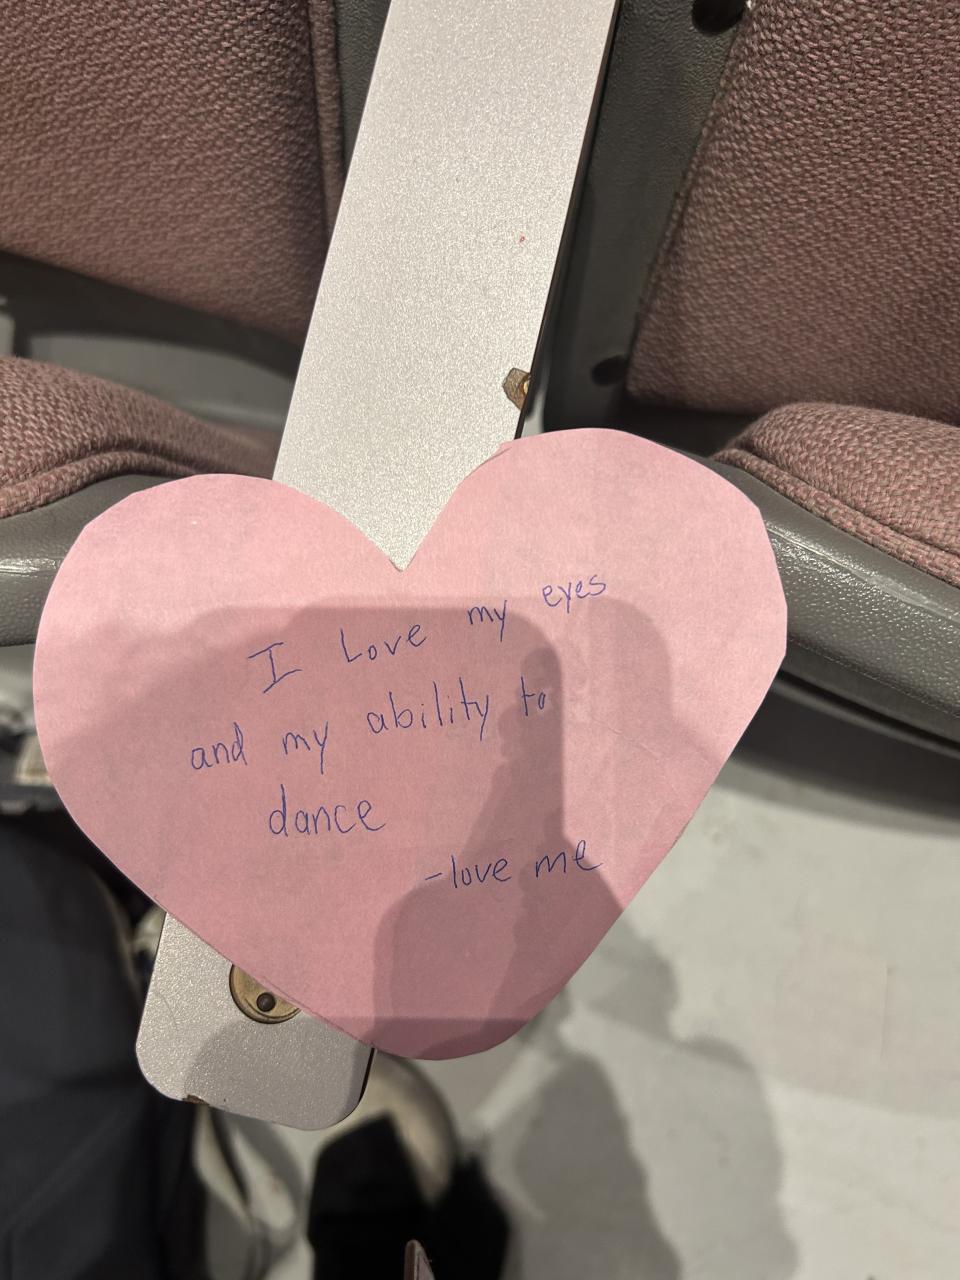 I Love my eyes
and my ability to
dance
-love me